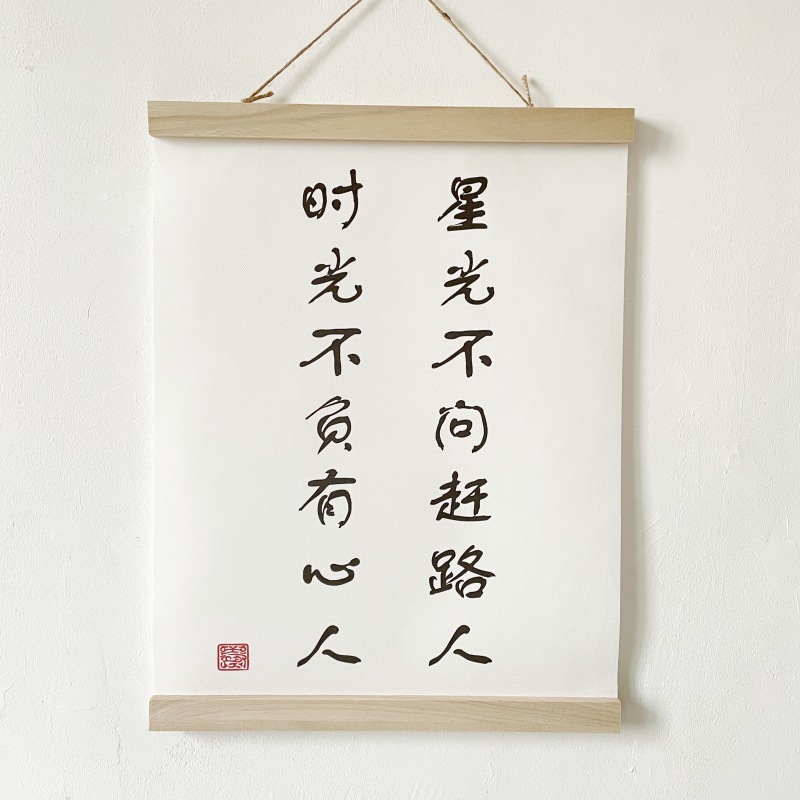 星光不向赶路人
时光不负有心人